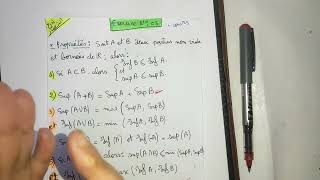 Exercice N° 03
* Propriétés: Soit A et B deux parties non vide
et bornées de ℝ; alors:
1) Si A ⊂ B alors { Inf B ≤ Inf A
et sup A ≤ Sup B
2) Sup (A+B) = Sup A + Sup B
3) Sup (A∪B) = max (Sup A, Sup B)
et Inf (A∪B) = min (Inf A, Inf B)
= Inf (A) et Inf (-A) = sup (A)
alors: sup (A∩B) ≤ min (Sup A, Sup B)
max (Inf A, Inf B)